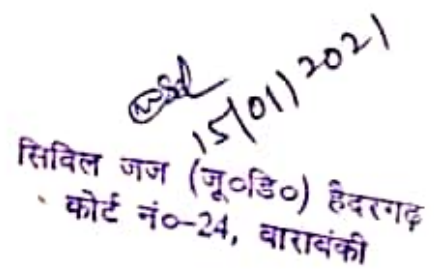 15/01/2021
सिविल जज (जू०डि०) हैदरगढ़
कोर्ट नं०-24, बाराबंकी